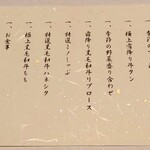 一、極上霜降り牛タン
一、季節の野菜盛り合わせ
一、霜降り黒毛和牛リブロース
一、特選ミノしゃぶ
一、特選黒毛和牛ハネシタ
一、極上黒毛和牛もも
一、お食事